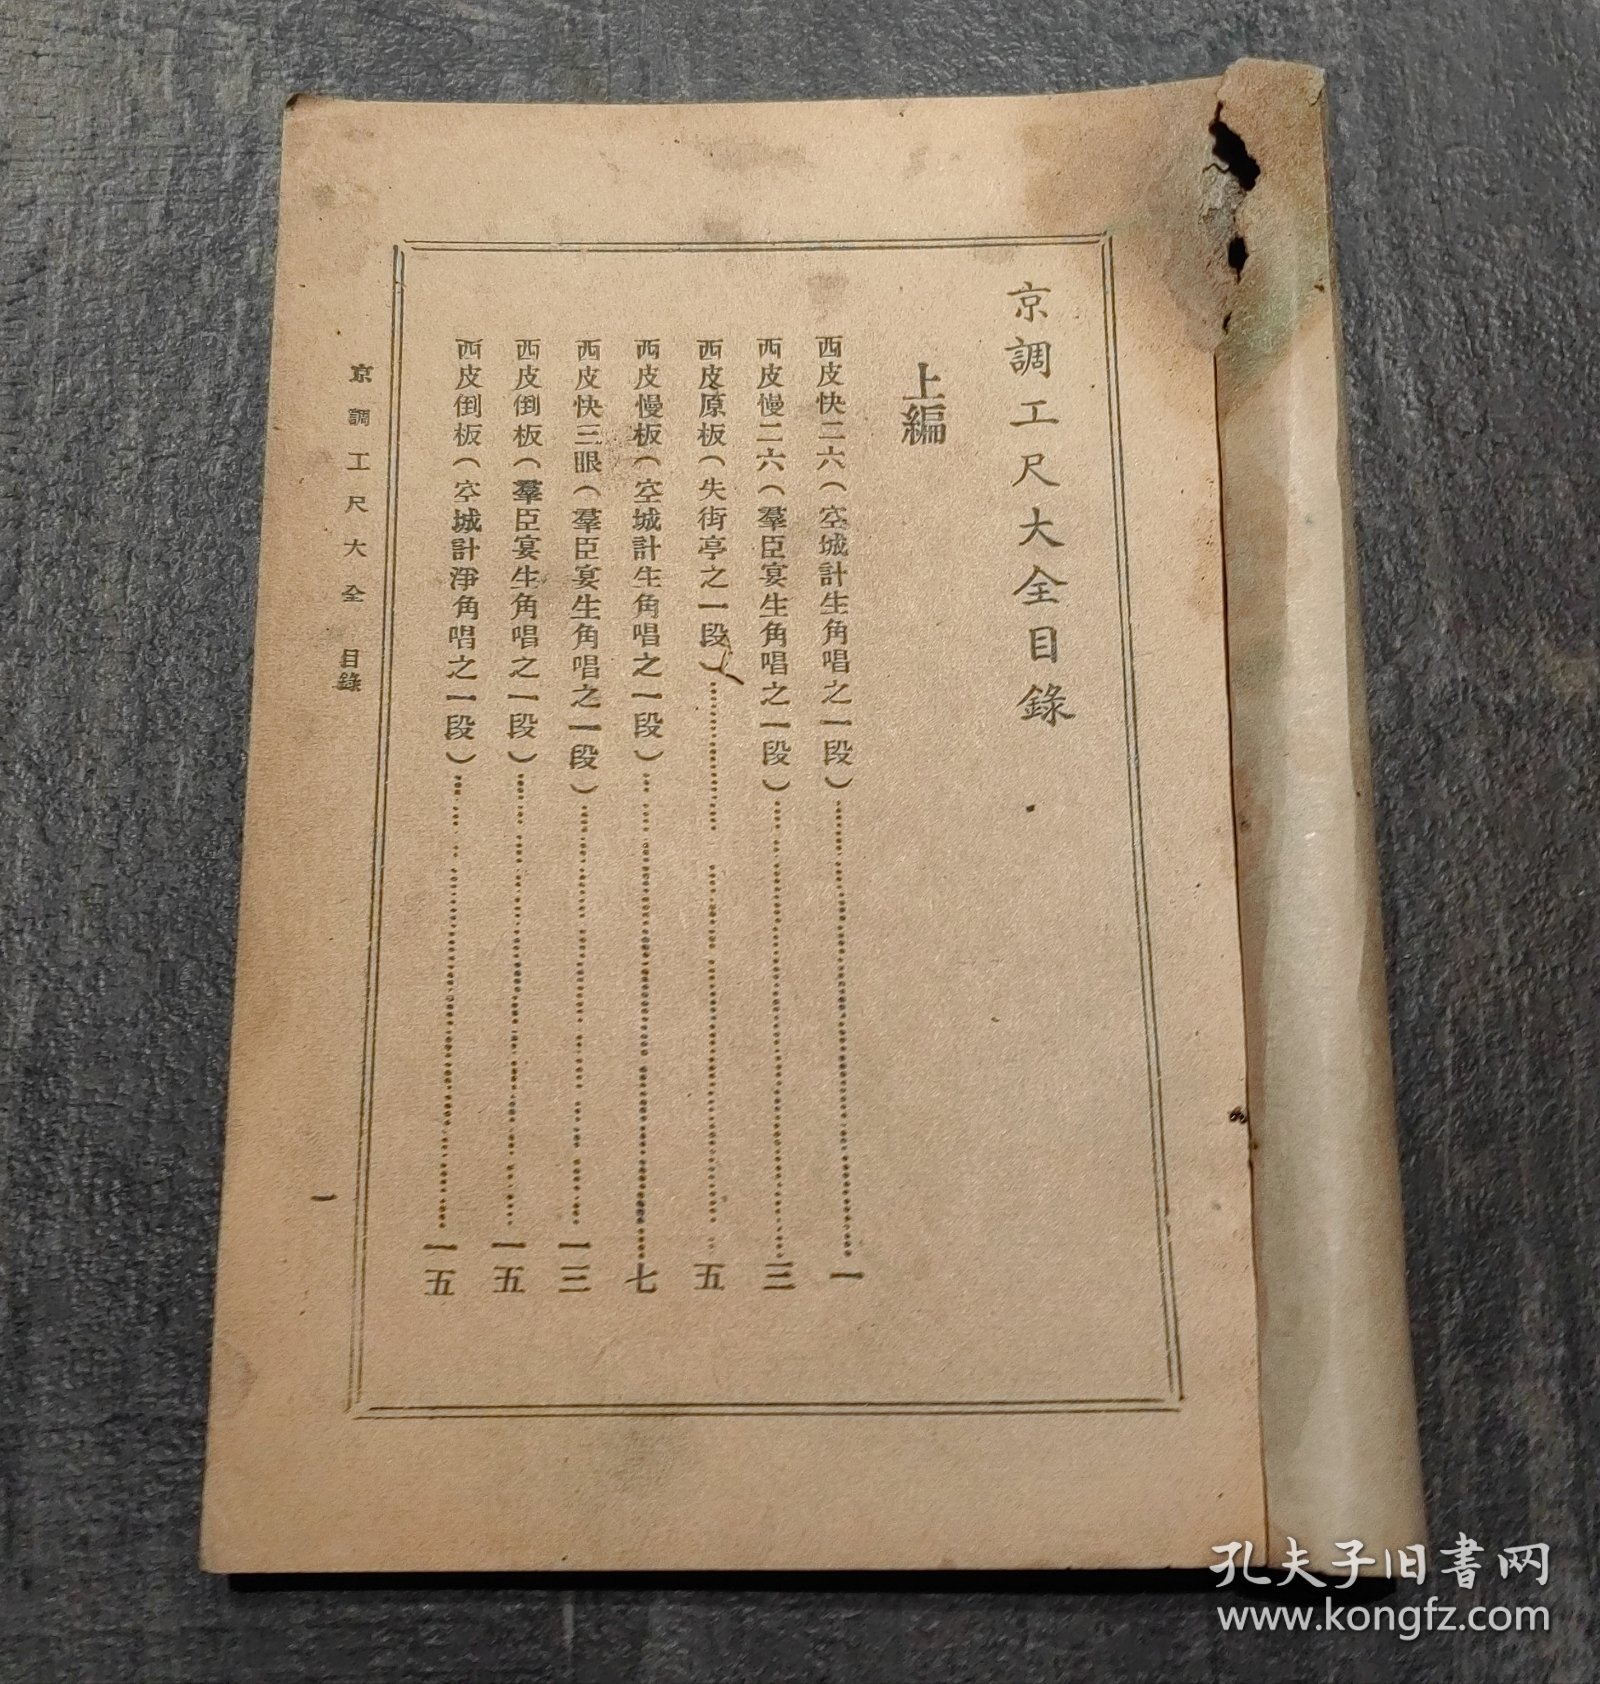 京調工尺大全目錄
上編
西皮快二六（空城計生角唱之一段）……一
西皮慢二六（羣臣宴生角唱之一段）……三
西皮原板（失街亭之一段）……五
西皮慢板（空城計生角唱之一段）……七
西皮快三眼（羣臣宴生角唱之一段）……一三
西皮倒板（羣臣宴生角唱之一段）……一五
西皮倒板（空城計淨角唱之一段）……一五
京調工尺大全 目錄
一
孔夫子旧书网
www.kongfz.com